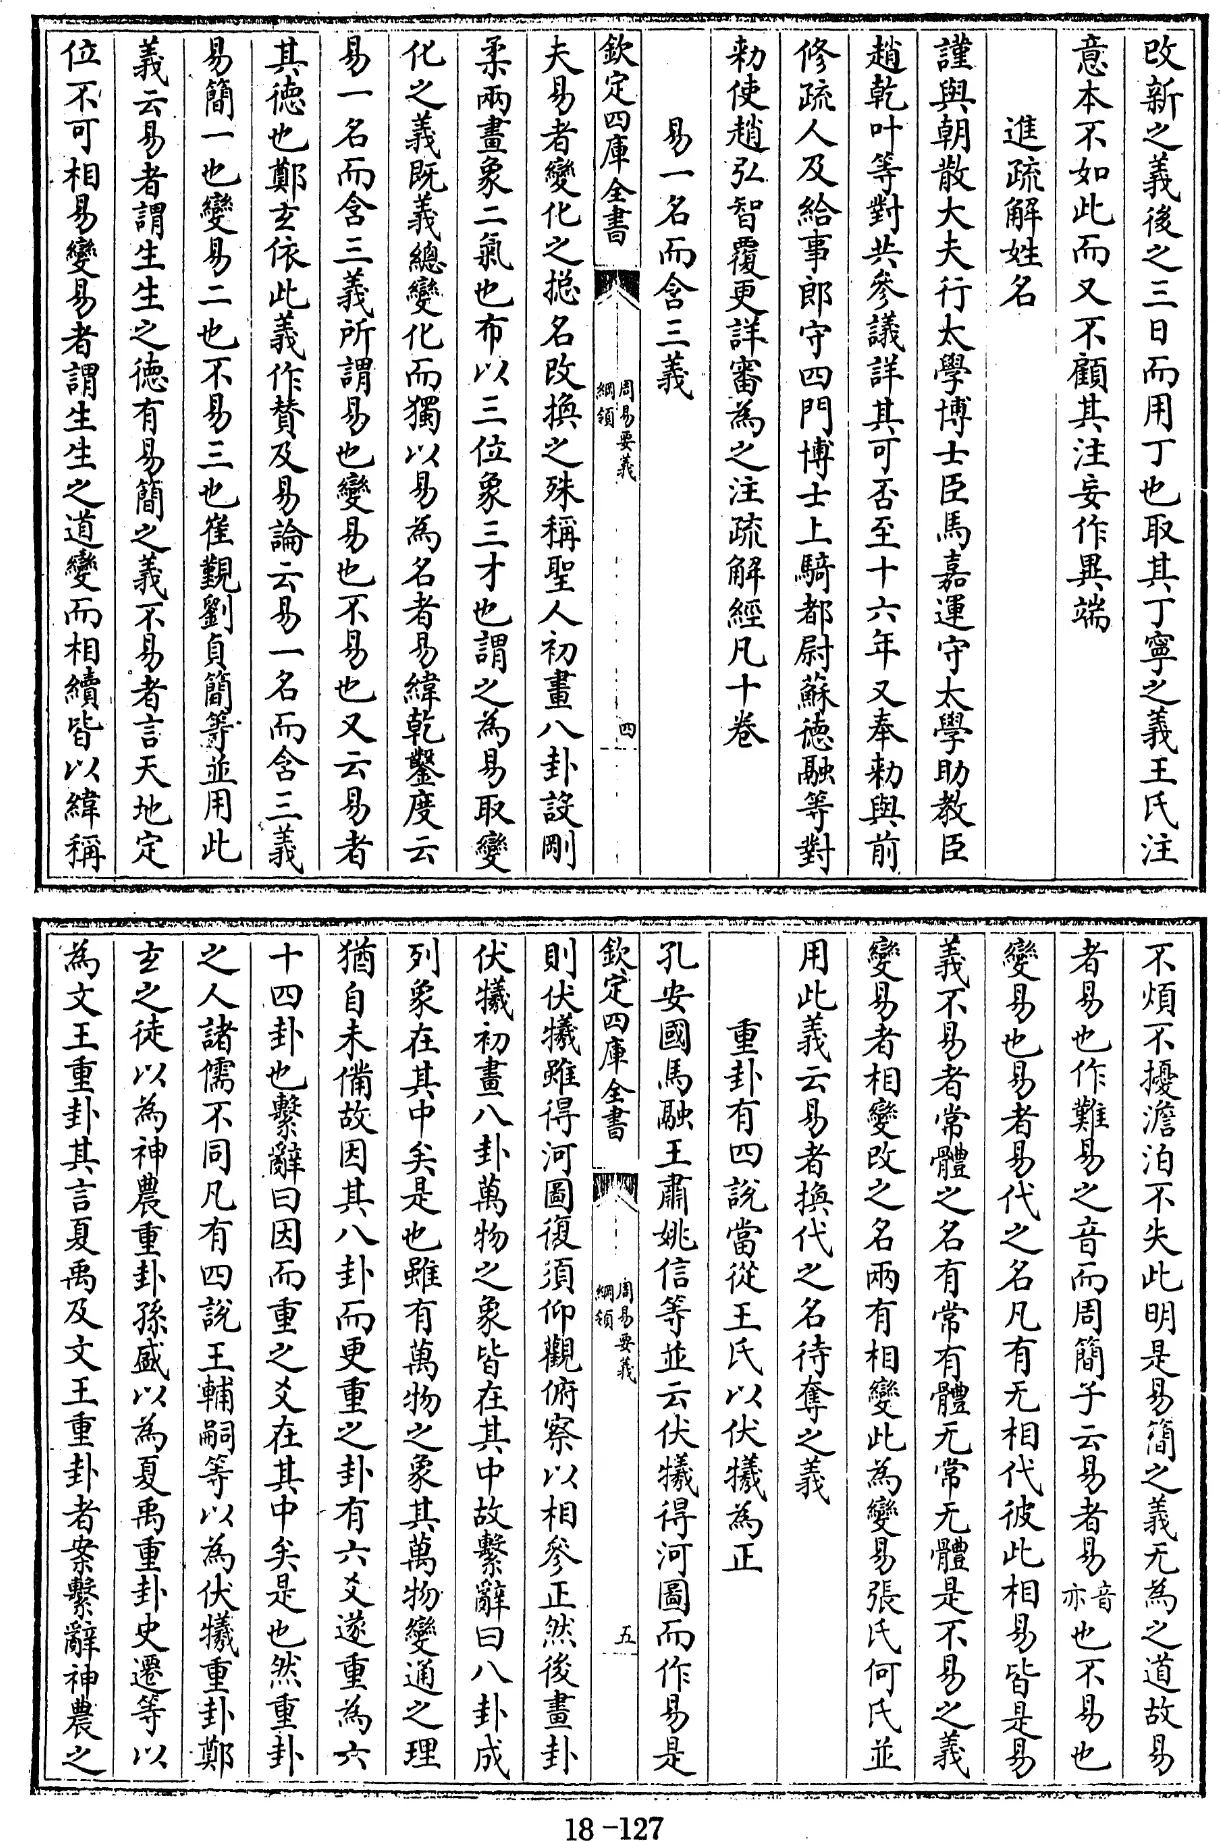 改新之義後之三日而用丁也取其丁寧之義王氏注
意本不如此而又不顧其注妄作異端
進疏解姓名
謹與朝散大夫行太學博士臣馬嘉運守太學助教臣
趙乾叶等對共參議詳其可否至十六年又奉勅與前
修疏人及給事郎守四門博士上騎都尉蘇德融等對
勅使趙弘智覆更詳審為之注疏解經凡十卷
易一名而含三義
欽定四庫全書
周易要義
綱領
四
夫易者變化之揔名改換之殊稱聖人初畫八卦設剛
柔兩畫象二氣也布以三位象三才也謂之為易取變
化之義既義總變化而獨以易為名者易緯乾鑿度云
易一名而含三義所謂易也變易也不易也又云易者
其德也鄭玄依此義作賛及易論云易一名而含三義
易簡一也變易二也不易三也崔覲劉貞簡等並用此
義云易者謂生生之德有易簡之義不易者言天地定
位不可相易變易者謂生生之道變而相續皆以緯稱
不煩不擾澹泊不失此明是易簡之義无為之道故易
者易也作難易之音而周簡子云易者易音亦也不易也
變易也易者易代之名凡有无相代彼此相易皆是易
義不易者常體之名有常有體无常无體是不易之義
變易者相變改之名兩有相變此為變易張氏何氏並
用此義云易者換代之名待奪之義
重卦有四說當從王氏以伏犧為正
孔安國馬融王肅姚信等並云伏犧得河圖而作易是
欽定四庫全書
周易要義
綱領
五
則伏犧雖得河圖復須仰觀俯察以相參正然後畫卦
伏犧初畫八卦萬物之象皆在其中故繫辭曰八卦成
列象在其中矣是也雖有萬物之象其萬物變通之理
猶自未備故因其八卦而更重之卦有六爻遂重為六
十四卦也繫辭曰因而重之爻在其中矣是也然重卦
之人諸儒不同凡有四說王輔嗣等以為伏犧重卦鄭
玄之徒以為神農重卦孫盛以為夏禹重卦史遷等以
為文王重卦其言夏禹及文王重卦者案繫辭神農之
18-127